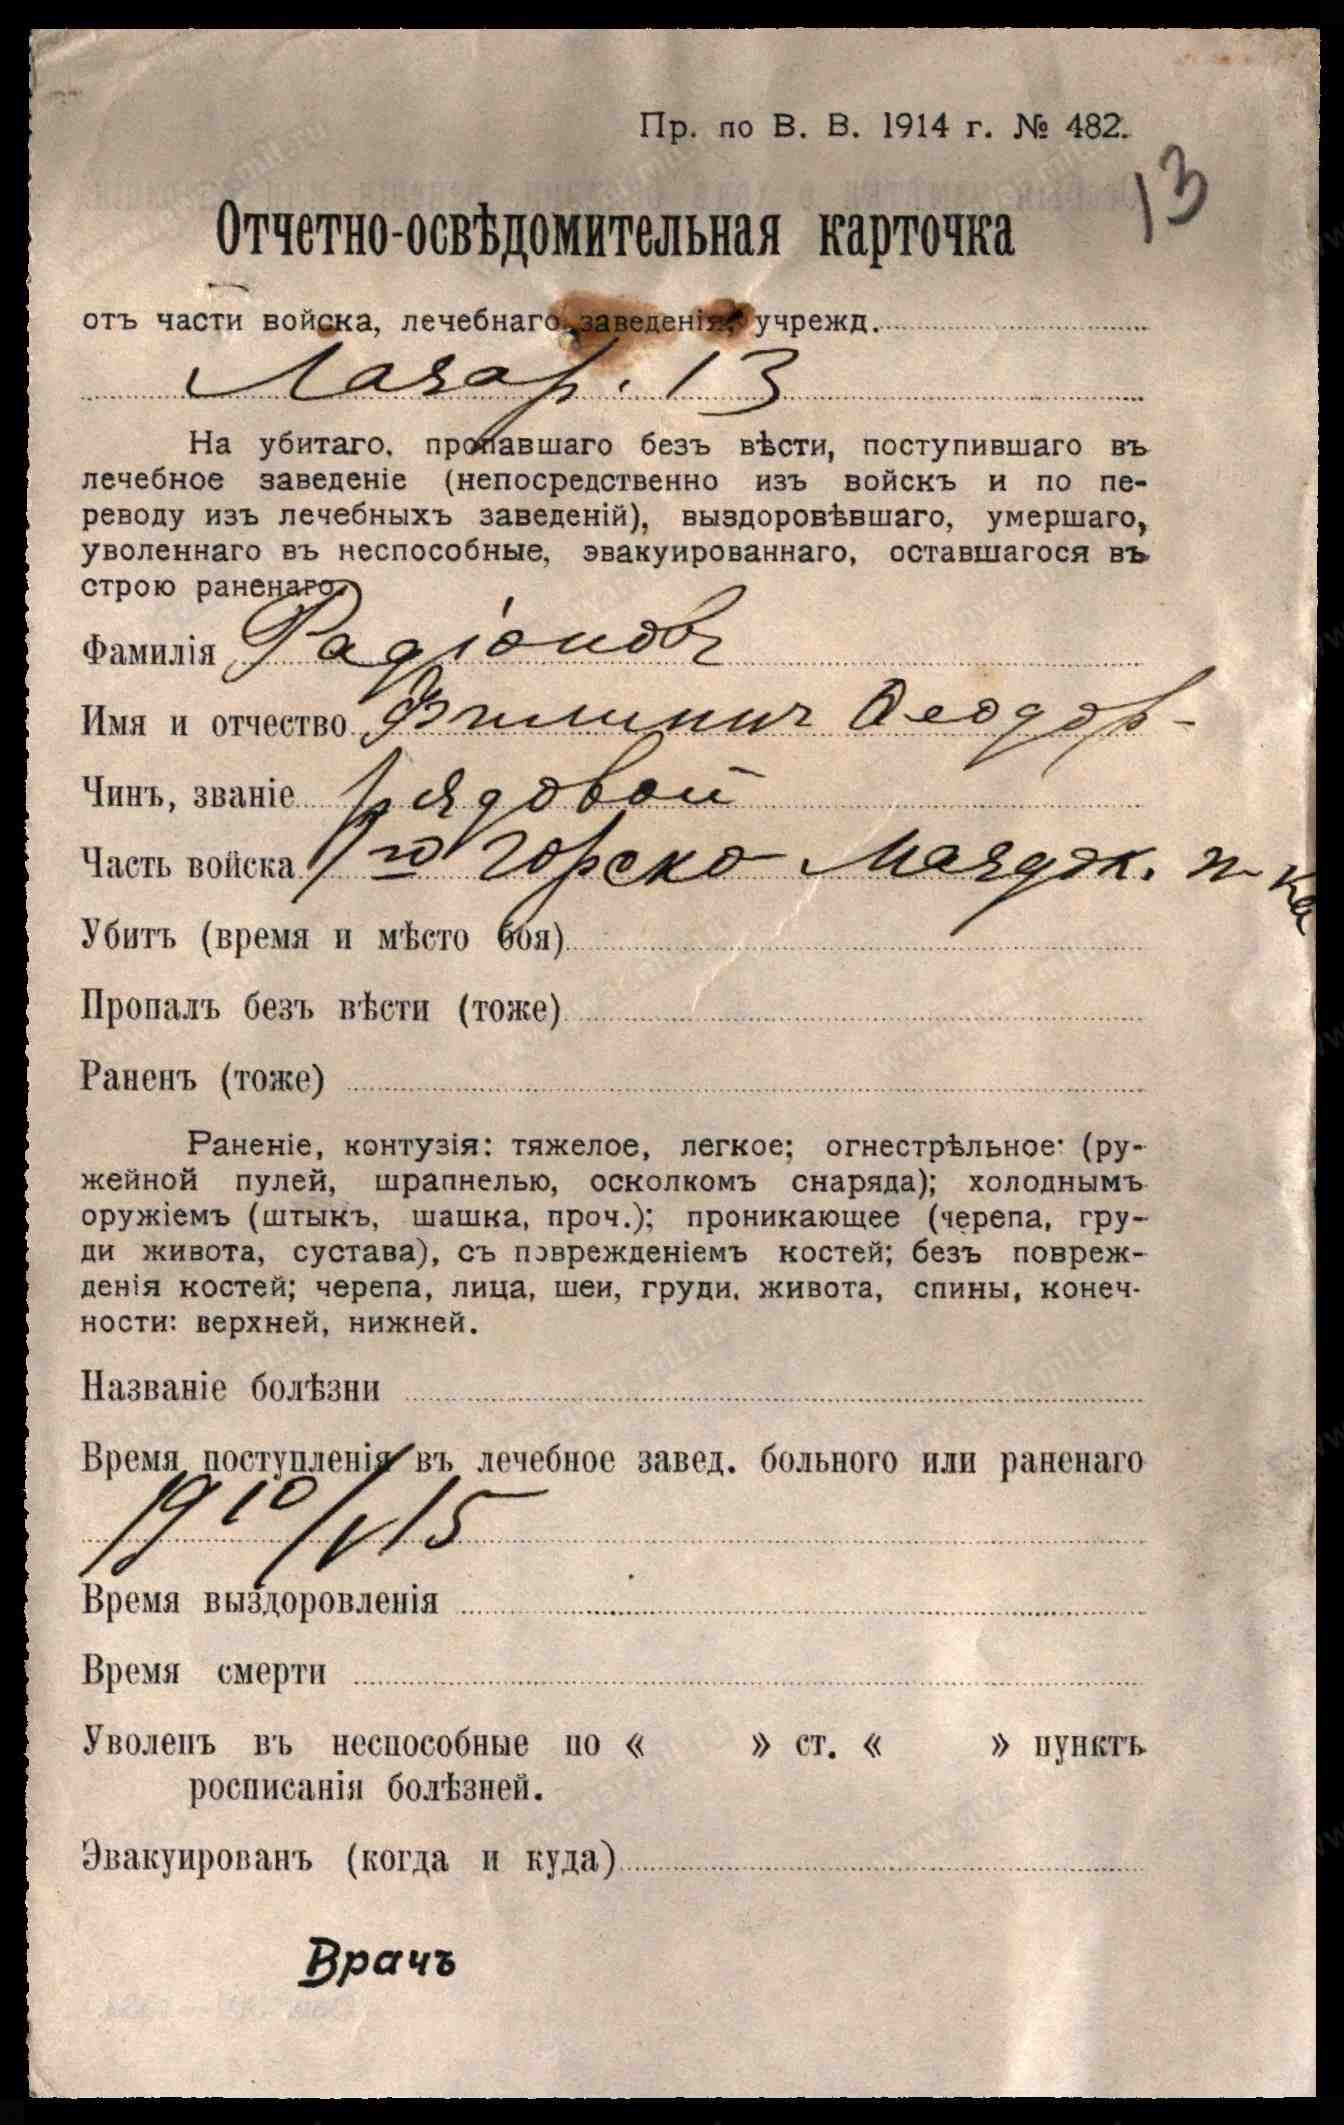 Пр. по В. В. 1914 г. № 482.
13
Отчетно-освѣдомительная карточка
отъ части войска, лечебнаго заведенія, учрежд.
Лазар. 13
На убитаго, пропавшаго безъ вѣсти, поступившаго въ
лечебное заведеніе (непосредственно изъ войскъ и по пе-
реводу изъ лечебныхъ заведеній), выздоровѣвшаго, умершаго,
уволеннаго въ неспособные, эвакуированнаго, оставшагося въ
строю раненаго.
Фамилія Радіоновъ
Имя и отчество Филиппъ Ѳеодор-
Чинъ, званіе рядовой
Часть войска 1го Горско п-ка
Убитъ (время и мѣсто боя)
Пропалъ безъ вѣсти (тоже)
Раненъ (тоже)
Раненіе, контузія: тяжелое, легкое; огнестрѣльное: (ру-
жейной пулей, шрапнелью, осколкомъ снаряда); холоднымъ
оружіемъ (штыкъ, шашка, проч.); проникающее (черепа, гру-
ди живота, сустава), съ поврежденіемъ костей; безъ повреж-
денія костей; черепа, лица, шеи, груди, живота, спины, конеч-
ности: верхней, нижней.
Названіе болѣзни
Время поступленія въ лечебное завед. больного или раненаго
19 10/V 15
Время выздоровленія
Время смерти
Уволенъ въ неспособные по « » ст. « » пунктъ
росписанія болѣзней.
Эвакуированъ (когда и куда)
Врачъ